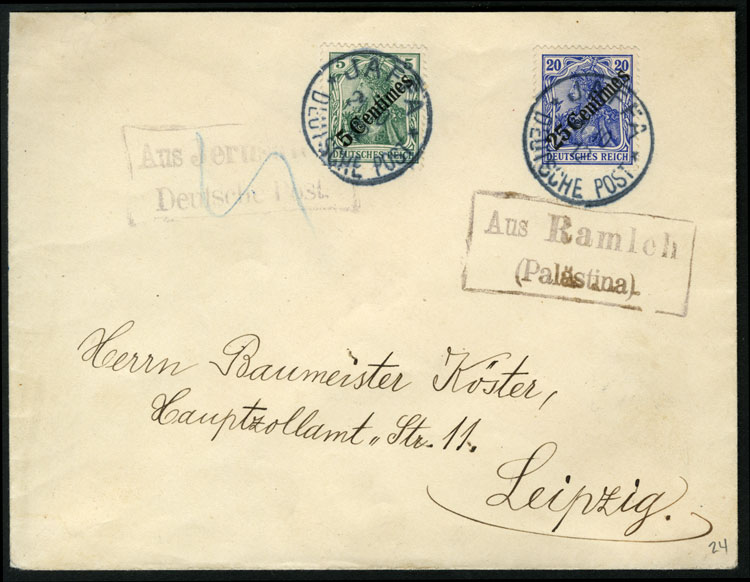 5 5
5 Centimes
DEUTSCHES REICH
* JAFFA *
DEUTSCHE POST
20 20
25 Centimes
DEUTSCHES REICH
* JAFFA *
DEUTSCHE POST
Aus Jerusalem
Deutsche Post.
Aus Ramleh
(Palästina)
Herrn Baumeister Köster,
Hauptzollamt „ Str. 11.
Leipzig.
24